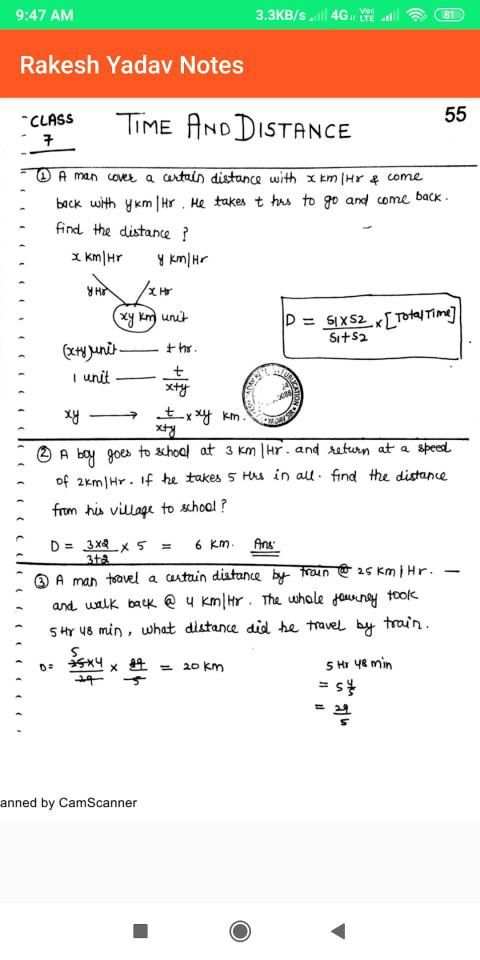 9:47 AM
3.3KB/s 4G VoLTE 81
Rakesh Yadav Notes
CLASS
7
TIME AND DISTANCE
55
① A man cover a certain distance with x km/Hr & come
back with y km/Hr. He takes t hrs to go and come back.
find the distance ?
x KM/Hr y KM/Hr
y Hr x Hr
xy km unit
D = S1 x S2 / S1 + S2 x [Total Time]
(x+y) unit — t hr.
1 unit — t / x+y
xy → t / x+y x xy km.
② A boy goes to school at 3 KM/Hr. and return at a speed
of 2KM/Hr. If he takes 5 Hrs in all. find the distance
from his village to school ?
D = 3x2 / 3+2 x 5 = 6 KM. Ans
③ A man travel a certain distance by train @ 25 KM/Hr. —
and walk back @ 4 KM/Hr. The whole journey took
5 Hr 48 min, what distance did he travel by train.
5
D = 25x4 / 29 x 29 / 5 = 20 KM
5 Hr 48 min
= 5 4/5
= 29/5
anned by CamScanner